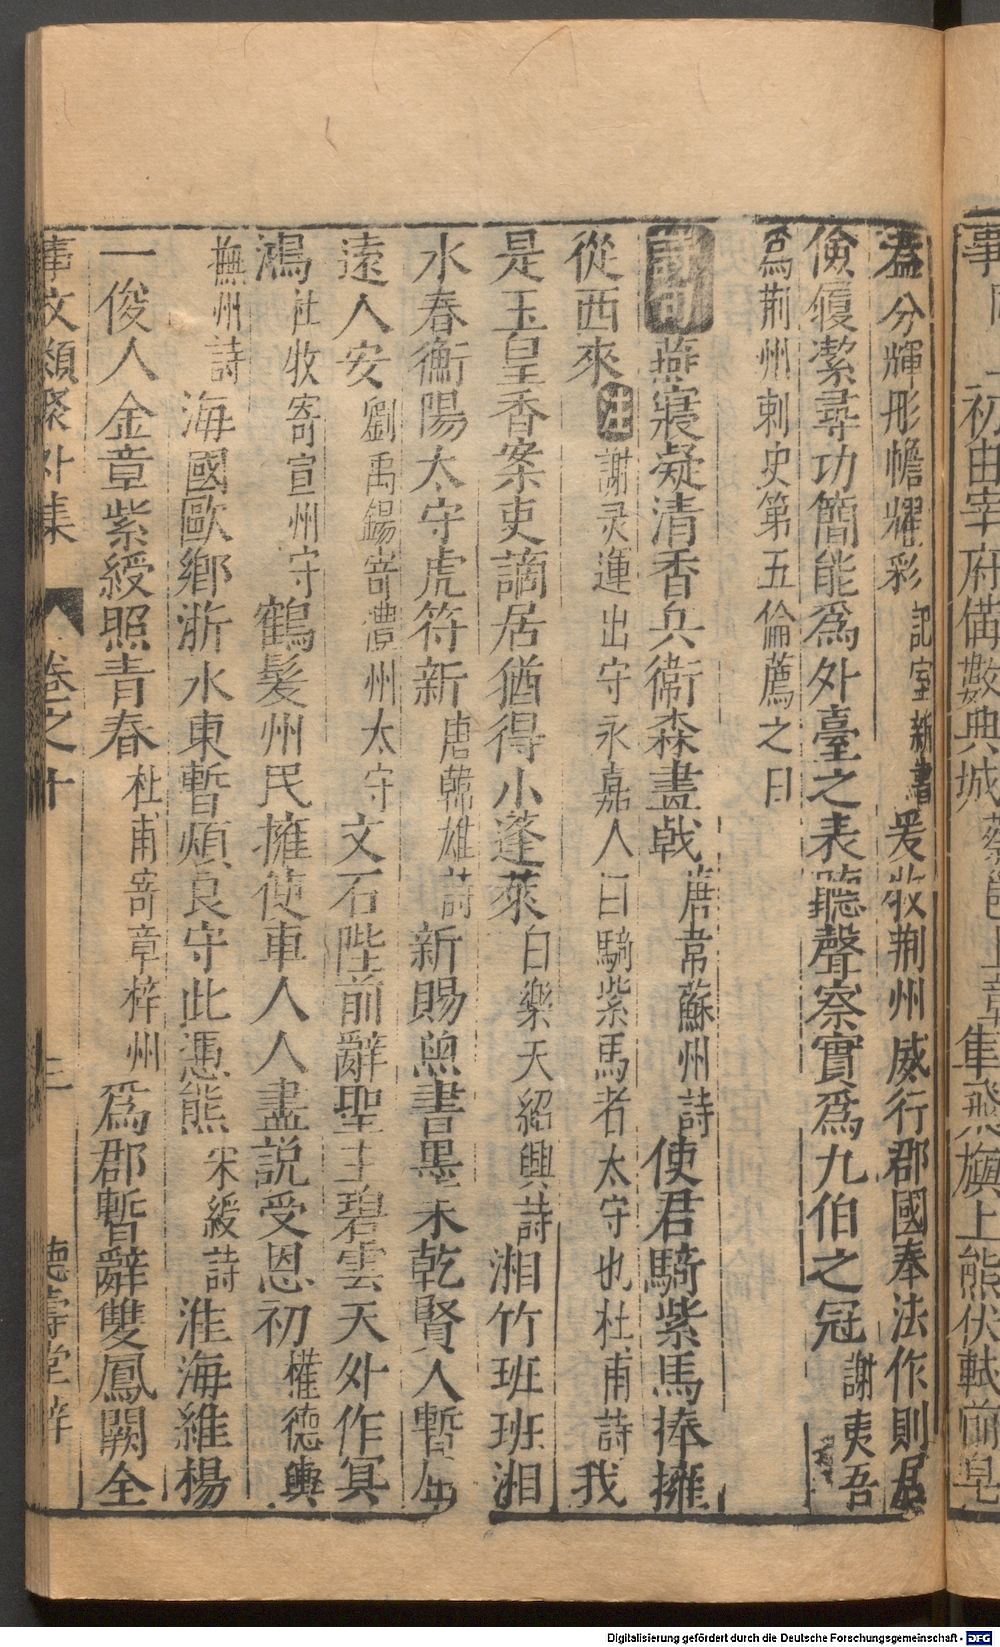 初由宰府備數典城
隼飛旟上熊伏軾前皂
蓋分輝彤幨耀彩記室新書爰牧荆州威行郡國奉法作則居
儉履潔尋功簡能爲外臺之表聽聲察實爲九伯之冠謝夷吾
爲荆州刺史第五倫薦之曰
詩句燕寢凝清香兵衛森畫戟唐韋蘇州詩使君騎紫馬捧擁
從西來注謝灵運出守永嘉人曰騎紫馬者太守也杜甫詩我
是玉皇香案吏謫居猶得小蓬萊白樂天紹興詩湘竹班班湘
水春衡陽太守虎符新唐韓雄詩新賜魚書墨未乾賢人暫屈
遠人安劉禹錫寄澧州太守文石陛前辭聖主碧雲天外作冥
鴻杜牧寄宣州守鶴髪州民擁使車人人盡説受恩初權德輿
撫州詩海國歐鄉浙水東暫煩良守此憑熊宋綬詩淮海維楊
一俊人金章紫綬照青春杜甫寄章梓州爲郡暫辭雙鳳闕全
事文類聚外集 卷之十 三 德壽堂梓
Digitalisierung gefördert durch die Deutsche Forschungsgemeinschaft - DFG